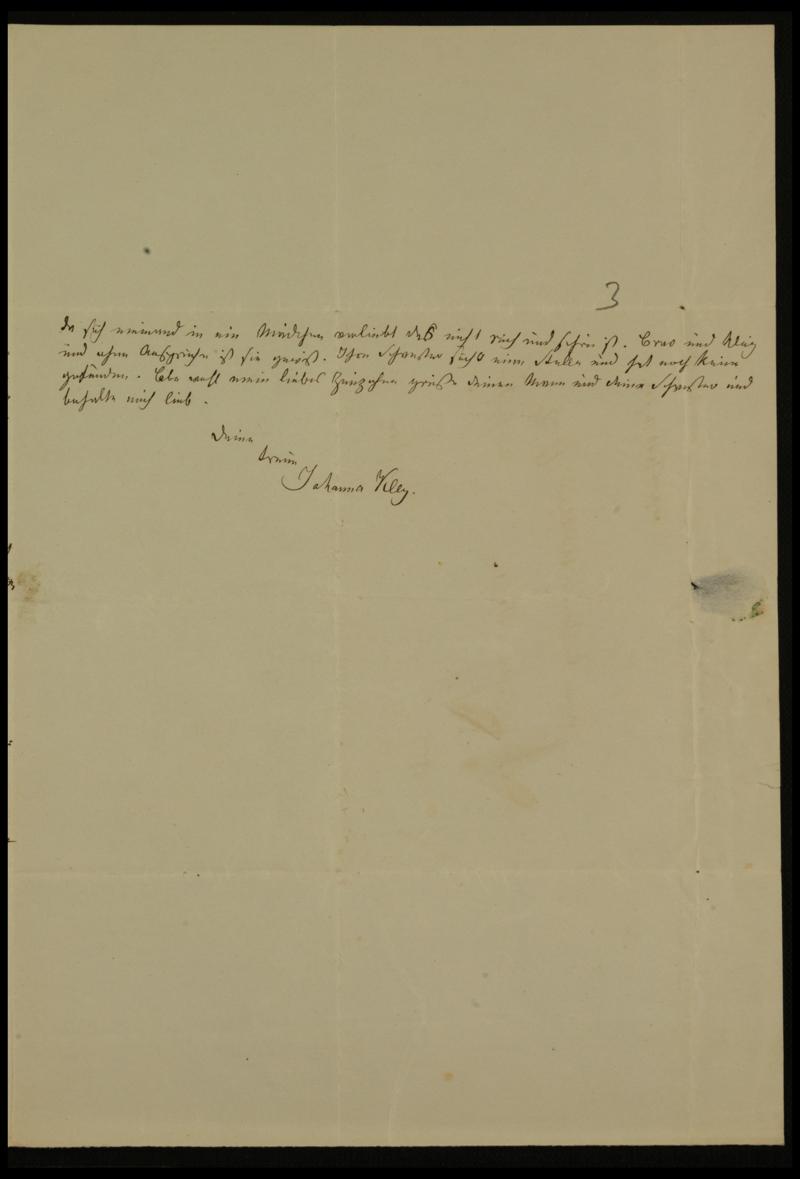 3
da sich niemand in ein Mädchen verliebt das nicht reich und schön ist. Brav und klug
und ohne Ansprüche ist sie gewiß. Ihre Schwester sucht eine Stelle und hat noch keine
gefunden. Lebe wohl mein liebes grüße deinen Mann und deine Schwester und
behalte mich lieb.
Deine
treue
Johanna Kley.